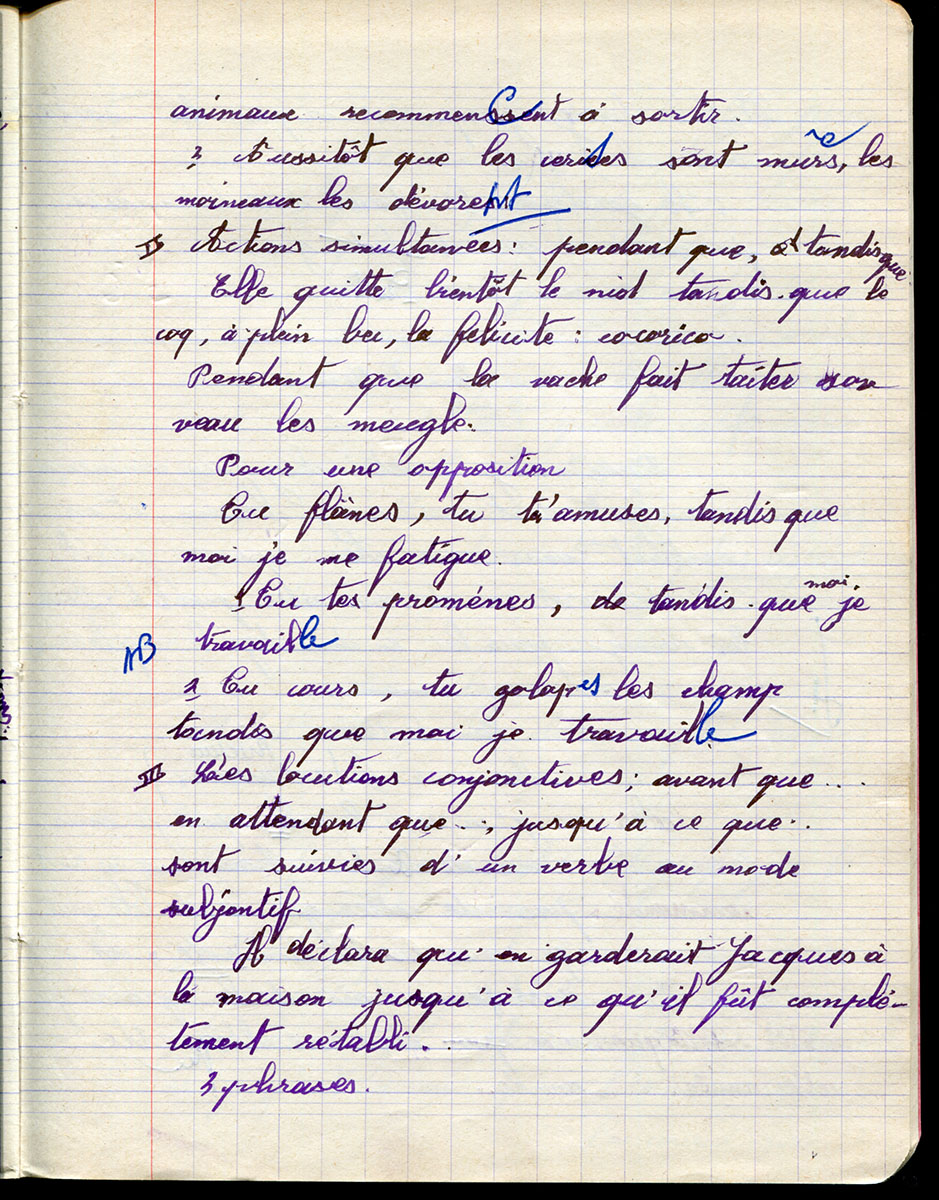 animaux recommencent à sortir.
2 Aussitôt que les cerises sont mures, les
moineaux les dévorent
II Actions simultanées : pendant que, et tandis que
Elle quitte bientôt le nid tandis que le
coq, à plein bec, la félicite : cocorico.
Pendant que la vache fait taiter son
veau les meugle.
Pour une opposition
Tu flânes, tu t'amuses, tandis que
moi je me fatigue.
1 Tu tes promènes, de tandis que moi je
AB travaille
2 Tu cours, tu galopes les champ
tandis que moi je travaille
III Les locutions conjonctives ; avant que...
en attendant que.. ; jusqu'à ce que..
sont suivies d'un verbe au mode
subjontif
Il déclara qu'on garderait Jacques à
la maison jusqu'à ce qu'il fût complè-
tement rétabli.
2 phrases.